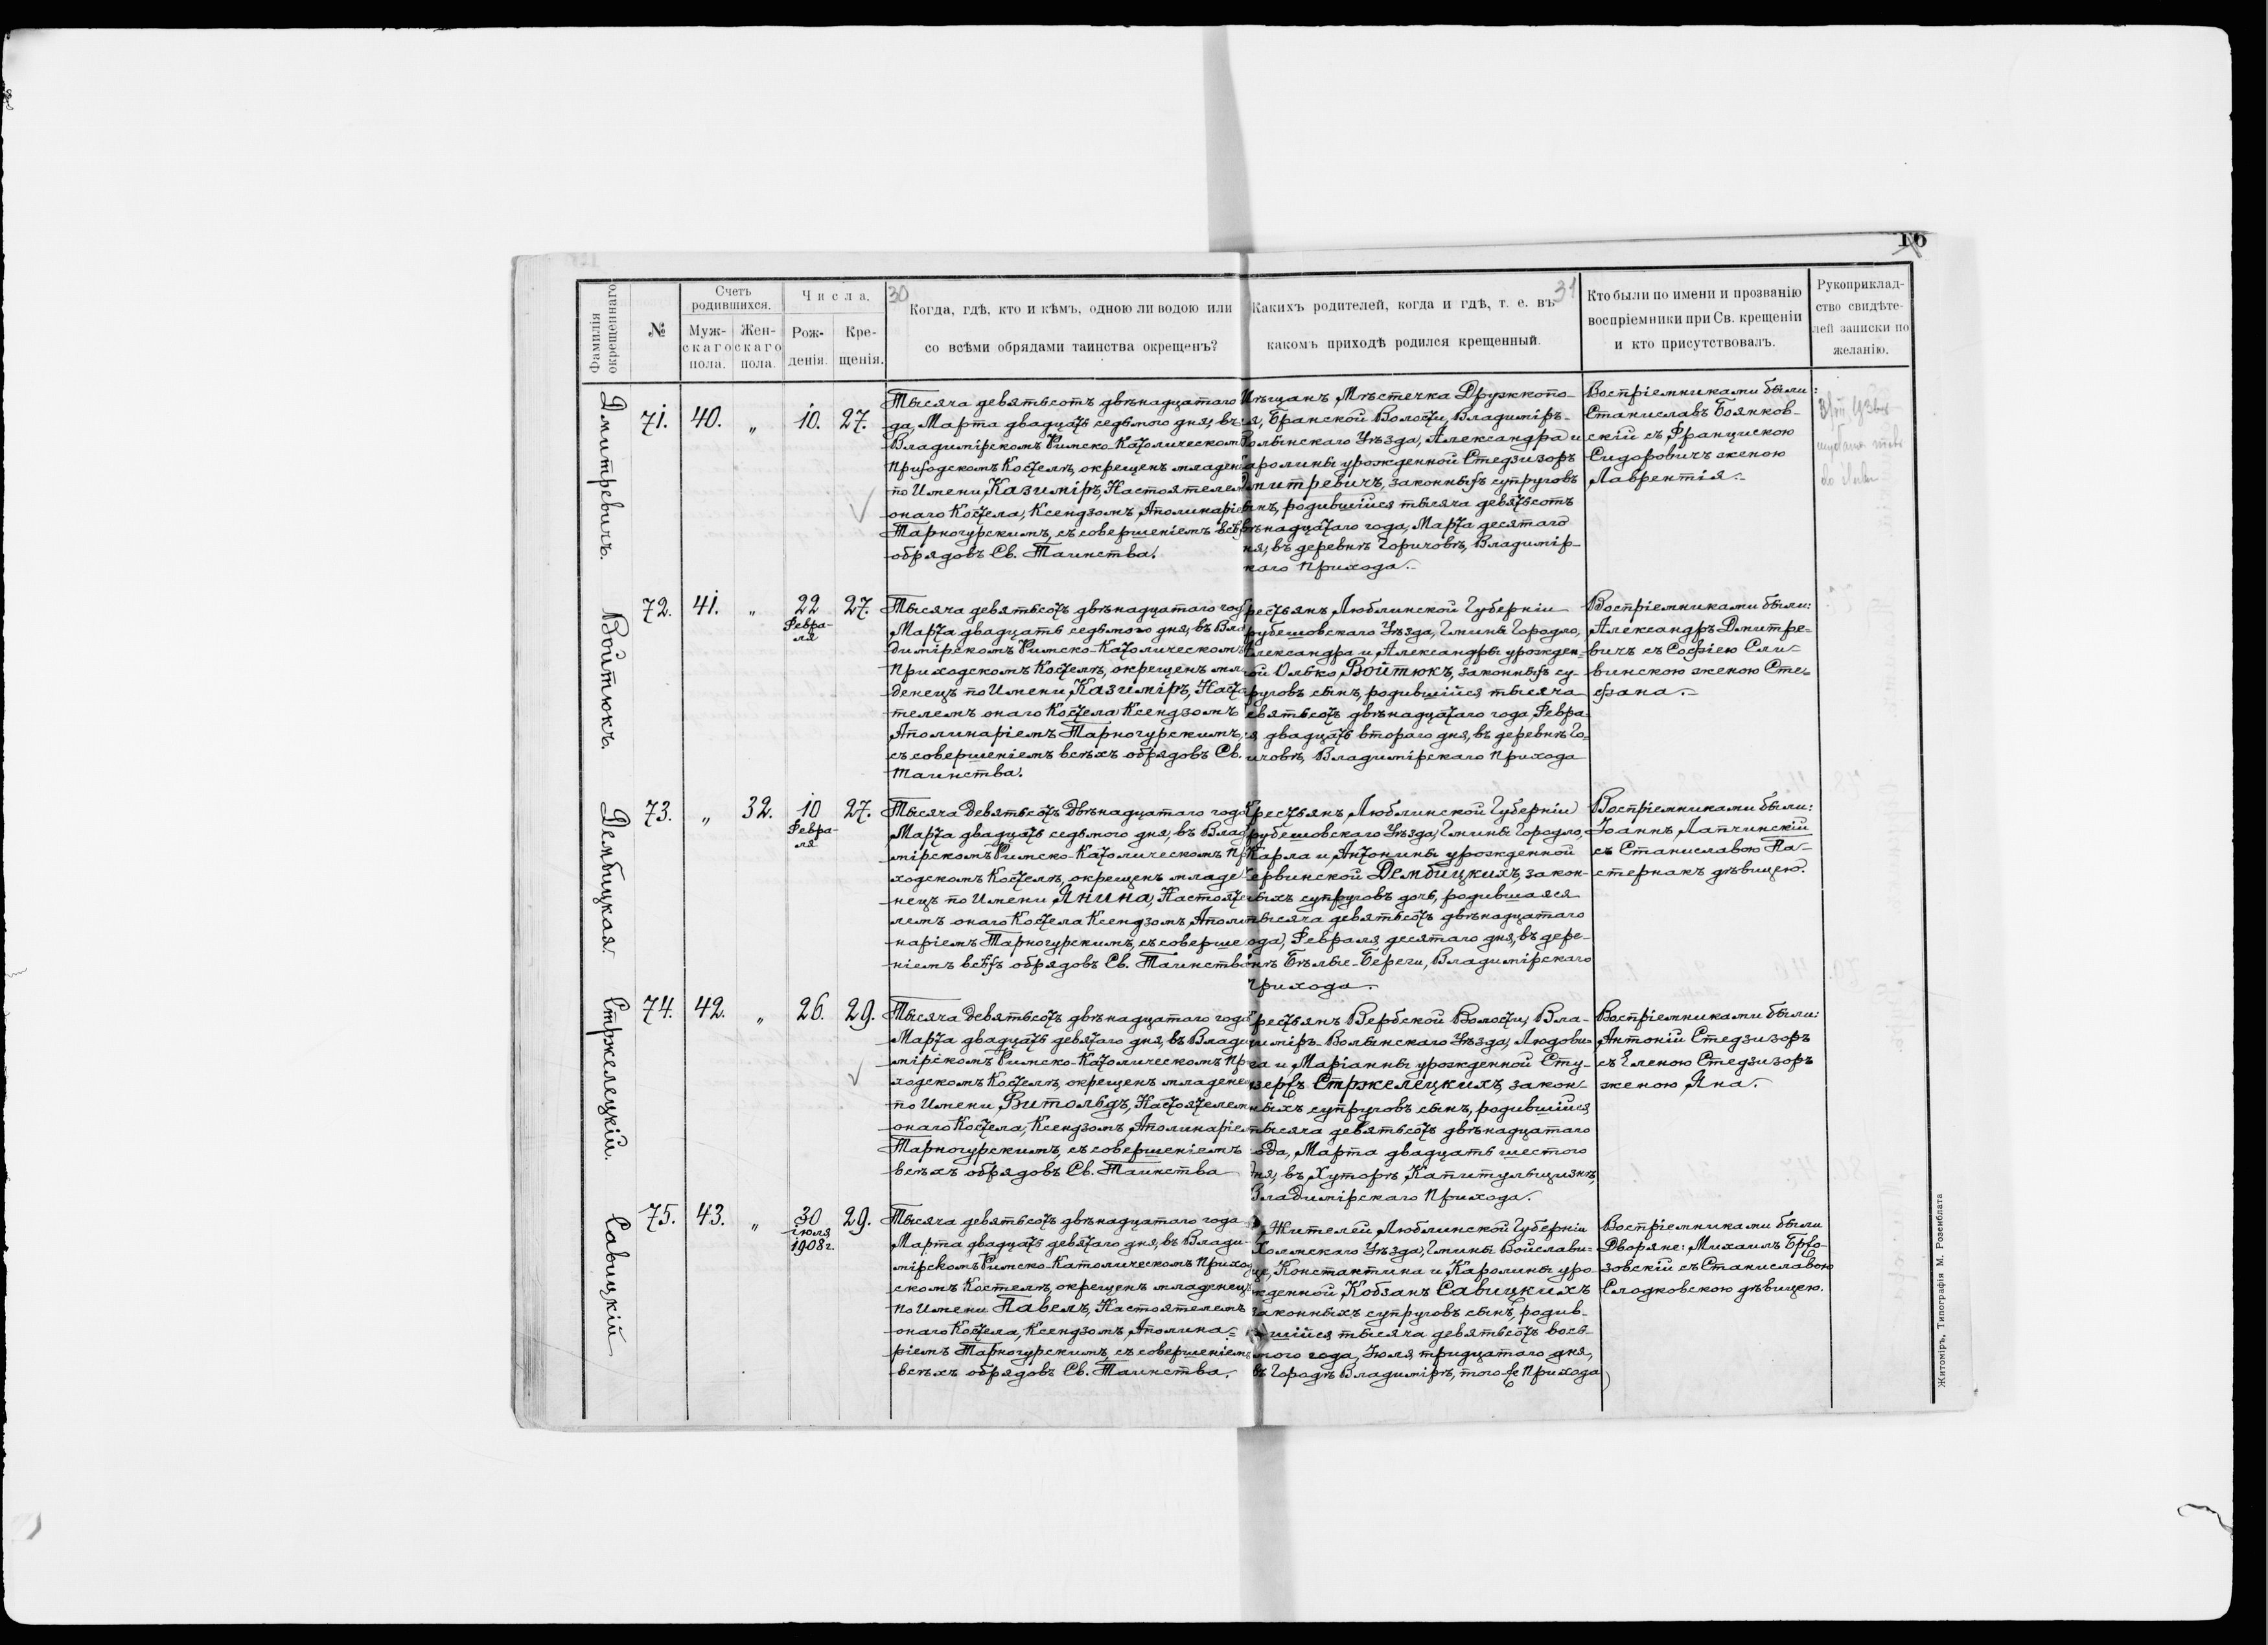 16
30
31
Фамилія окрещеннаго
№
Счетъ родившихся.
Мужскаго пола.
Женскаго пола.
Числа.
Рожденія.
Крещенія.
Когда, гдѣ, кто и кѣмъ, одною ли водою или
со всѣми обрядами таинства окрещенъ?
Какихъ родителей, когда и гдѣ, т. е. въ
какомъ приходѣ родился крещенный.
Кто были по имени и прозванію
воспріемники при Св. крещеніи
и кто присутствовалъ.
Рукоприклад-
ство свидѣте-
лей записки по
желанію.
Дмитревичъ.
71.
40.
„
10.
27.
Тысяча девятьсотъ двѣнадцатаго
да, Марта двадцать седьмого дня, въ
Владимірскомъ Римско-Католическом
Приходскомъ Костелѣ, окрещенъ младен
по Имени Казиміръ, Настоятелем
онаго Костела, Ксендзомъ Аполинаріе
Тарногурскимъ, съ совершеніемъ всѣх
обрядовъ Св. Таинства.
ѣщанъ Мѣстечка Дружкопо-
я, Бранской Волости, Владиміръ-
олынскаго Уѣзда, Александра и
аролины урожденной Стедзизоръ
митревичъ, законныхъ супруговъ
ынъ, родившійся тысяча девятьсотъ
ѣнадцатаго года, Марта десятаго
ня, въ деревнѣ Горичовѣ, Владимір-
каго Прихода.
Воспріемниками были:
Станиславъ Боянков-
скій съ Францискою
Сидоровичъ женою
Лаврентія.
Войтюкъ.
72.
41.
„
22
Февра-
ля
27.
Тысяча девятьсотъ двѣнадцатаго год
Марта двадцать седьмого дня, въ Вла
димірскомъ Римско-Католическомъ
Приходскомъ Костелѣ, окрещенъ мла
денецъ по Имени Казиміръ, Насто
телемъ онаго Костела Ксендзомъ
Аполинаріемъ Тарногурскимъ,
съ совершеніемъ всѣхъ обрядовъ Св.
Таинства.
рестьянъ Люблинской Губерніи
рубешовскаго Уѣзда, Гмины Городло,
Александра и Александры урожден-
ой Олько Войтюкъ, законныхъ су-
руговъ сынъ, родившійся тысяча
евятьсотъ двѣнадцатаго года, Февра-
я двадцать второго дня, въ деревнѣ Го-
ичовѣ, Владимірскаго Прихода
Воспріемниками были:
Александръ Дмитре-
вичъ съ Софіею Сли-
винскою женою Сте-
фана.
Дембицкая.
73.
„
32.
10
Февра-
ля
27.
Тысяча девятьсотъ двѣнадцатаго года
Марта двадцать седьмого дня, въ Влад
мірскомъ Римско-Католическомъ Пр
ходскомъ Костелѣ, окрещенъ младе
нецъ по Имени Янина, Настояте
лемъ онаго Костела Ксендзомъ Аполи
наріемъ Тарногурскимъ, съ соверше
ніемъ всѣхъ обрядовъ Св. Таинства
Крестьянъ, Люблинской Губерніи
рубешовскаго Уѣзда, Гмины Городло,
Карла и Антонины урожденной
ервинской Дембицкихъ, закон-
ыхъ супруговъ дочь, родившаяся
тысяча девятьсотъ двѣнадцатаго
ода, Февраля десятаго дня, въ дере-
нѣ Бѣлые-Береги, Владимірскаго
Прихода.
Воспріемниками были:
Іоаннъ Лапчинскій
съ Станиславою Па-
стернакъ дѣвицею.
Стржелецкій.
74.
42.
„
26.
29.
Тысяча девятьсотъ двѣнадцатаго года
Марта двадцать девятаго дня, въ Влади
мірскомъ Римско-Католическомъ Пр
ходскомъ Костелѣ, окрещенъ младене
по Имени Витольдъ, Настоятелем
онаго Костела, Ксендзомъ Аполинаріе
Тарногурскимъ, съ совершеніемъ
всѣхъ обрядовъ Св. Таинства
рестьянъ Вербской Волости, Вла-
диміръ-Волынскаго Уѣзда, Людови-
га и Маріанны урожденной Сту-
Стржелецкихъ, закон-
ныхъ супруговъ сынъ, родившійся
тысяча девятьсотъ двѣнадцатаго
ода, Марта двадцать шестого
дня, въ Хуторѣ Капитульщизнѣ,
Владимірскаго Прихода.
Воспріемниками были:
Антоній Стедзизоръ
съ Еленою Стедзизоръ
женою Яна.
Савицкій
75.
43.
„
30
іюля
1908 г.
29.
Тысяча девятьсотъ двѣнадцатаго года
Марта двадцать девятаго дня, въ Влади-
мірскомъ Римско-Католическомъ Приход
скомъ Костелѣ, окрещенъ младенецъ
по Имени Павелъ, Настоятелемъ
онаго Костела, Ксендзомъ, Аполина-
ріемъ Тарногурскимъ, съ совершеніемъ
всѣхъ обрядовъ Св. Таинства.
Жителей Люблинской Губерніи
Холмскаго Уѣзда, Гмины Войслави-
це, Константина и Каролины уро-
жденной Кобзанъ Савицкихъ
законныхъ супруговъ сынъ, родив-
шійся тысяча девятьсотъ вось-
мого года, Іюля тридцатаго дня,
въ Городѣ Владимірѣ, того же Прихода
Воспріемниками были
Дворяне: Михаилъ Бржо-
зовскій съ Станиславою
Слодковскою дѣвицею.
Житоміръ, Типографія М. Розенблата